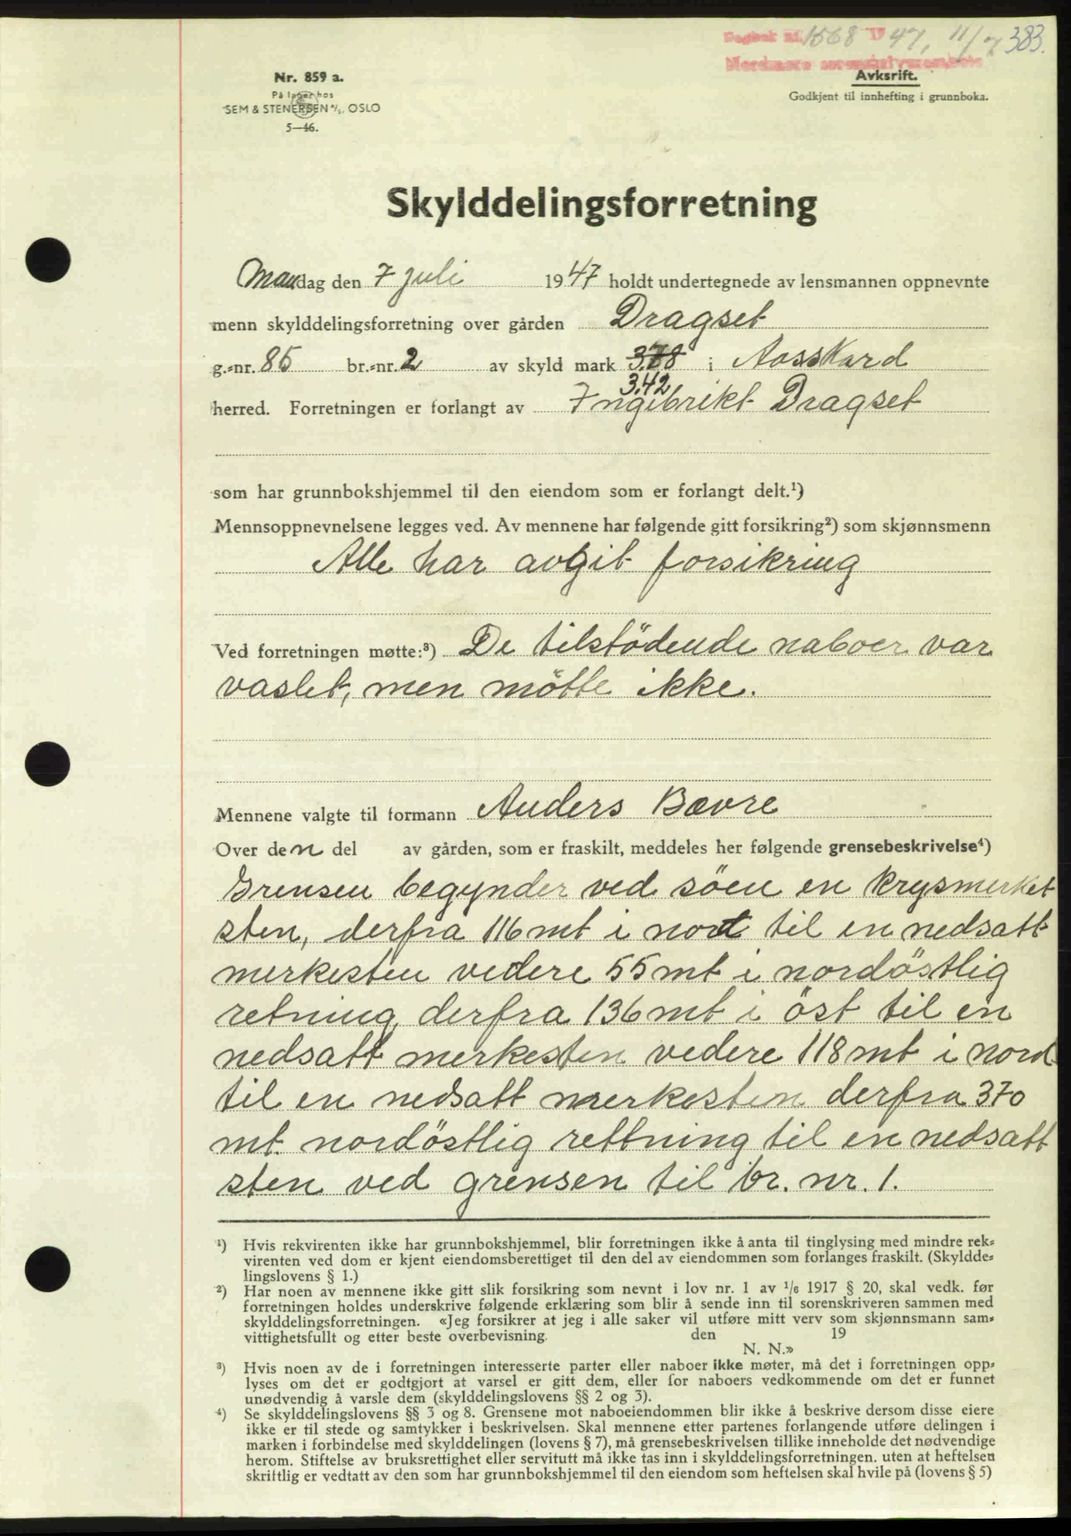 Dagbok nr. 1568 1947, 11/7 383.
Nordmøre sorenskriverembete
Nr. 859 a.
På lager hos
SEM & STENERSEN A/S, OSLO
5—46.
Avksrift.
Godkjent til innhefting i grunnboka.
Skylddelingsforretning
Mandag den 7 juli 1947 holdt undertegnede av lensmannen oppnevnte
menn skylddelingsforretning over gården Dragset
g.-nr. 85 br.-nr. 2 av skyld mark 3.78 i Aasskard
3.42
herred. Forretningen er forlangt av Ingebrikt Dragset
som har grunnbokshjemmel til den eiendom som er forlangt delt.¹)
Mennsoppnevnelsene legges ved. Av mennene har følgende gitt forsikring²) som skjønnsmenn
Alle har avgit forsikring
Ved forretningen møtte:³) De tilstödende naboer var
vaslet, men mötte ikke.
Mennene valgte til formann Anders Bævre
Over den del av gården, som er fraskilt, meddeles her følgende grensebeskrivelse⁴)
Grensen begynder ved söen en krysmerket
sten, derfra 116 mt i nord til en nedsatt
merkesten videre 55 mt i nordöstlig
retning derfra 136 mt i öst til en
nedsatt merkesten videre 118 mt i nord
til en nedsatt merkesten derfra 370
mt. nordöstlig rettning til en nedsatt
sten ved grensen til br. nr. 1.
¹) Hvis rekvirenten ikke har grunnbokshjemmel, blir forretningen ikke å anta til tinglysing med mindre rek-
virenten ved dom er kjent eiendomsberettiget til den del av eiendommen som forlanges fraskilt. (Skyldde-
lingslovens § 1.)
²) Har noen av mennene ikke gitt slik forsikring som nevnt i lov nr. 1 av 1/6 1917 § 20, skal vedk. før
forretningen holdes underskrive følgende erklæring som blir å sende inn til sorenskriveren sammen med
skylddelingsforretningen. «Jeg forsikrer at jeg i alle saker vil utføre mitt verv som skjønnsmann sam-
vittighetsfullt og etter beste overbevisning. den 19
N. N.»
³) Hvis noen av de i forretningen interesserte parter eller naboer ikke møter, må det i forretningen opp-
lyses om det er godtgjort at varsel er gitt dem, eller for naboers vedkommende om det er funnet
unødvendig å varsle dem (skylddelingslovens §§ 2 og 3).
⁴) Se skylddelingslovens §§ 3 og 8. Grensene mot naboeiendommen blir ikke å beskrive dersom disse eiere
ikke er til stede og samtykker i beskrivelsen. Skal mennene etter partenes forlangende utføre delingen i
marken i forbindelse med skylddelingen (lovens § 7), må grensebeskrivelsen tillike inneholde det nødvendige
herom. Stiftelse av bruksrettighet eller servitutt må ikke tas inn i skylddelingsforretningen. uten at heftelsen
skriftlig er vedtatt av den som har grunnbokshjemmel til den eiendom som heftelsen skal hvile på (lovens § 5)